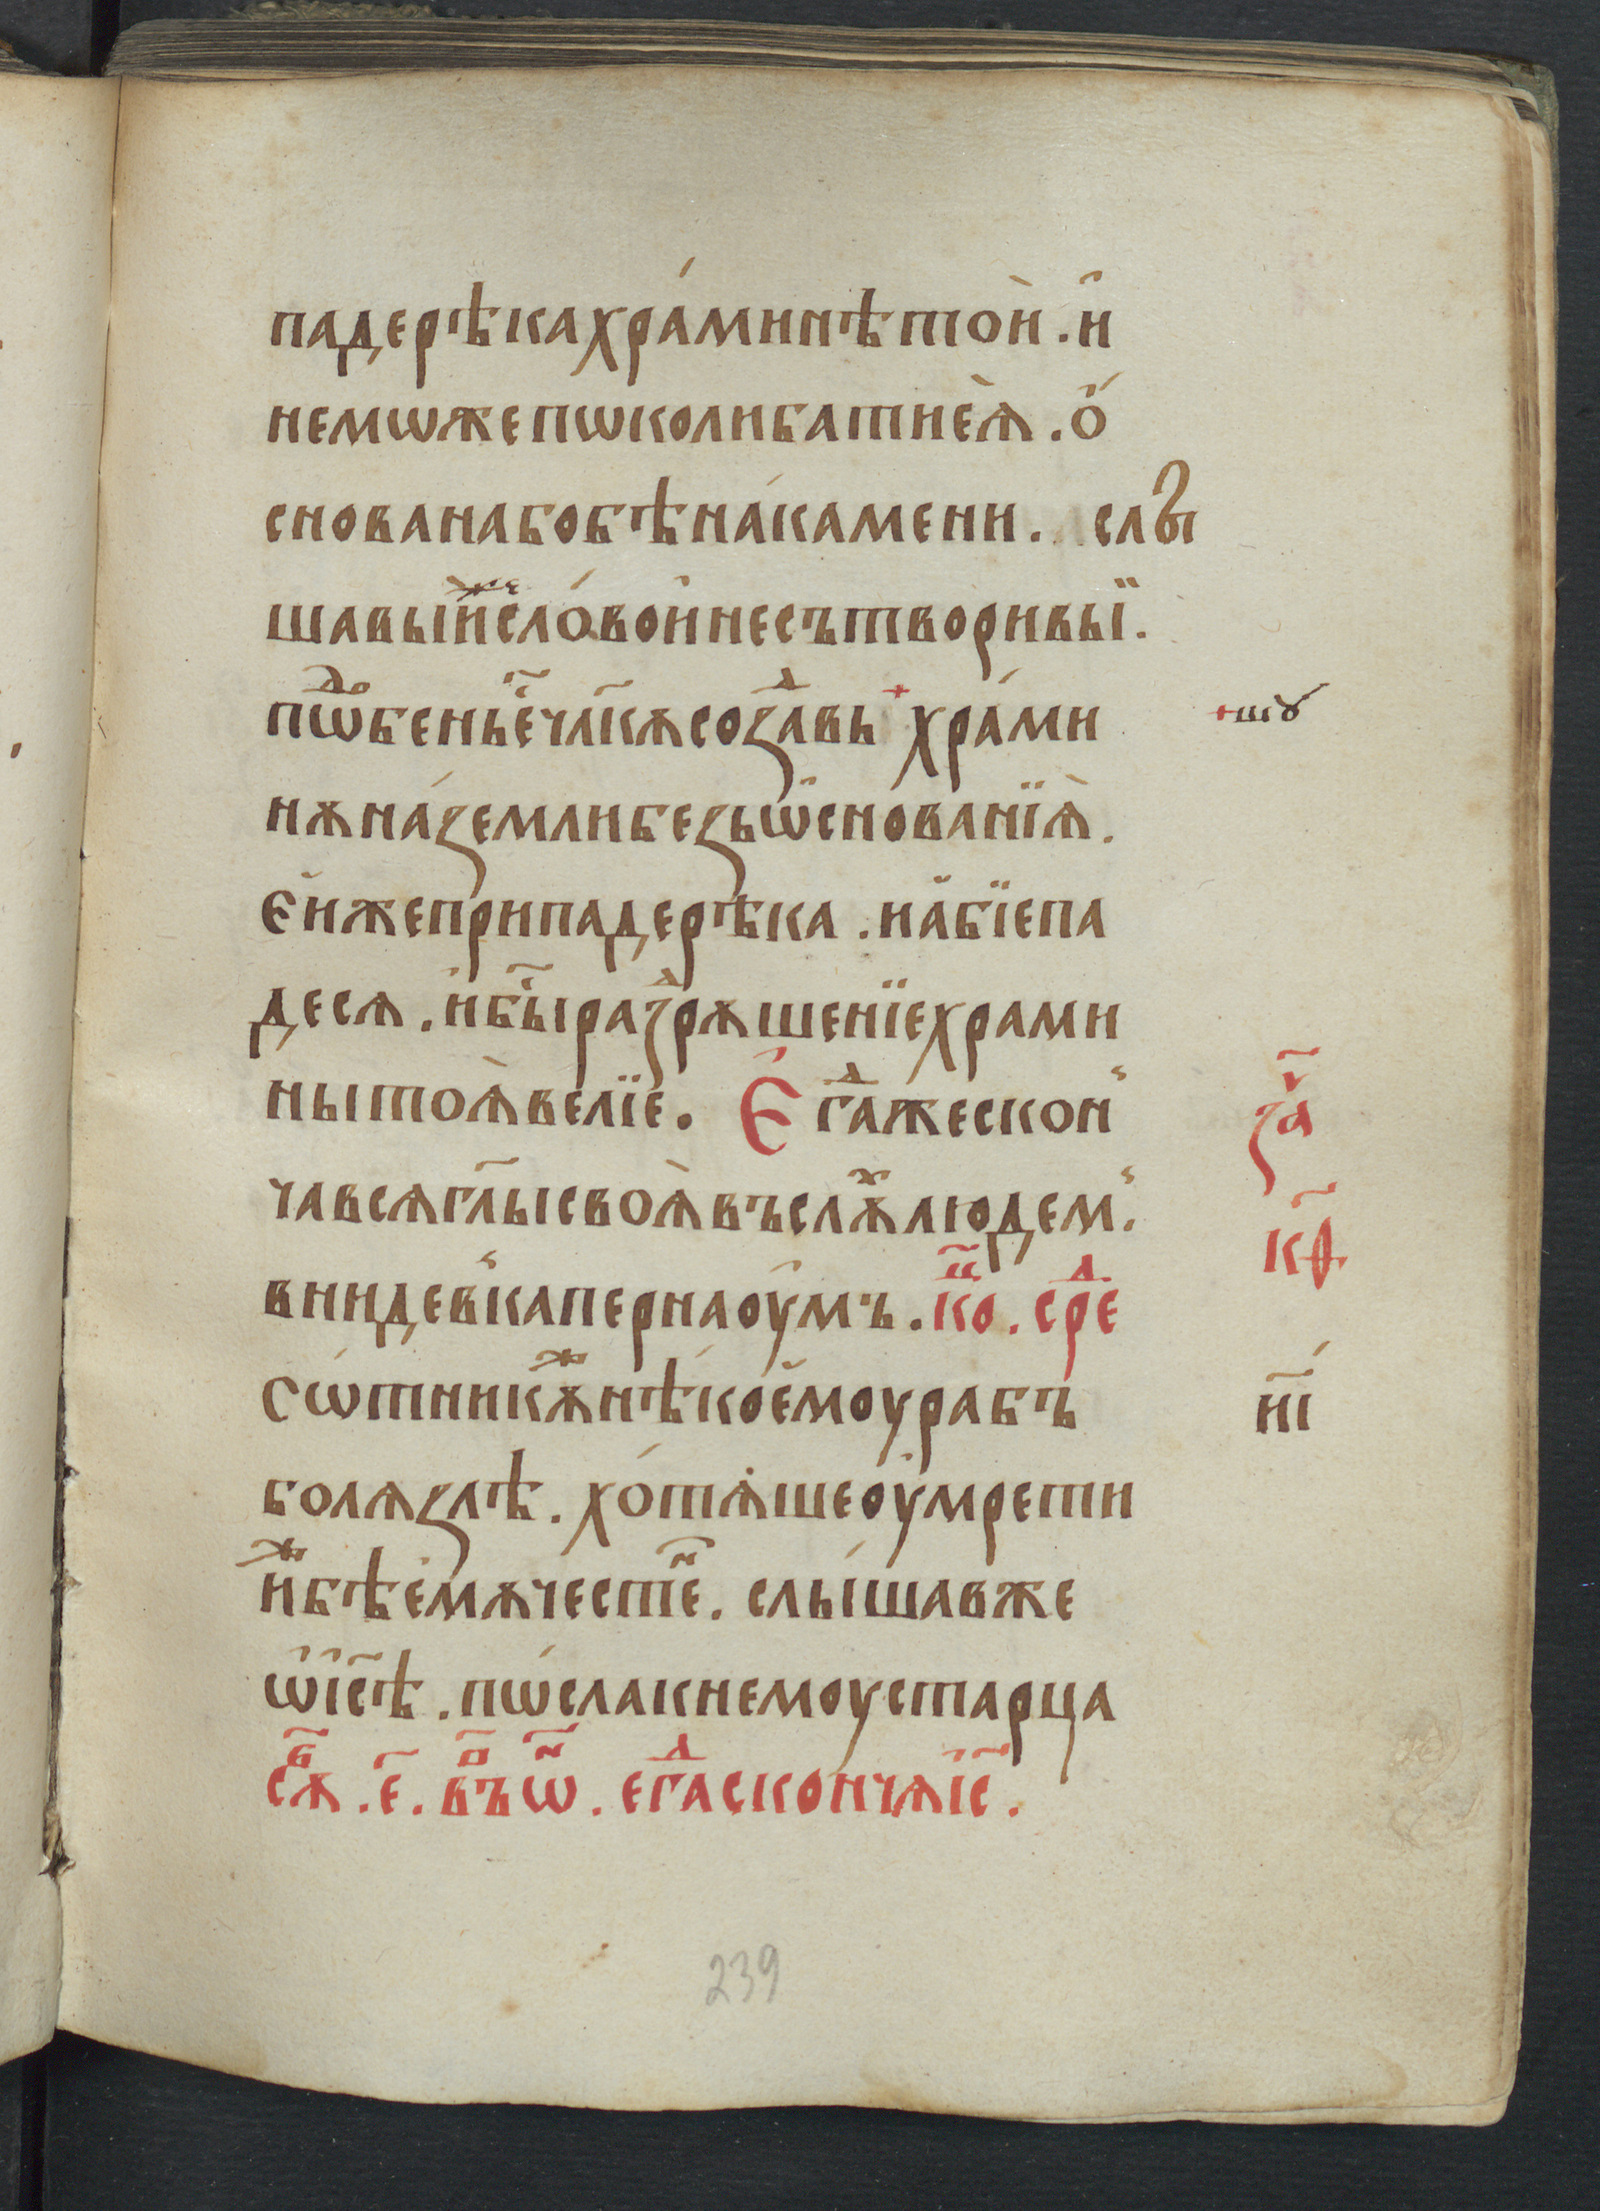 падерѣкахра́минѣтоѝ . и҆҃
немѡжепѡколибатиеѧ̀ . о҆́
снованабобѣна́камени . слы
шавы́йжесло́вои҆несътворивы́й .
пѡⷣ҇обенье҆҃чл҃кѫсозⷣавь + хра́ми + шꙋ
нѫна́землибезьѡ҆снованїѧ̀ .
є҆и҆жеприпадерѣка . иа҆бїепа
десѧ . и҆бы҃разⷣрѫшенїехрами
нытоѧ̀велїе . Є҆гⷣа́жескон за҃ⷱ
чавсѧгл҃ысвоѧ̀въслꙋⷯлюдем . к҃ѳ
внидевкапернаоу҆мъ . кⷩ҇о . срⷣе
Сѡ́тникѫⷤнѣ́кое҆моурабъ н҃і
болѧзлѣ . хо́тѧшеоу҆мрети
и҆ⷤбѣе҆мѫчестⷩ҇е . слы́шавже
ѡ҆і҆с҃ѣ . пѡ́слакнемоустарца
сѫⷠ҇ . е҃ . въⷫ҇ѡⷩ҇ . егⷣаскончѧі҆с҃ .
239